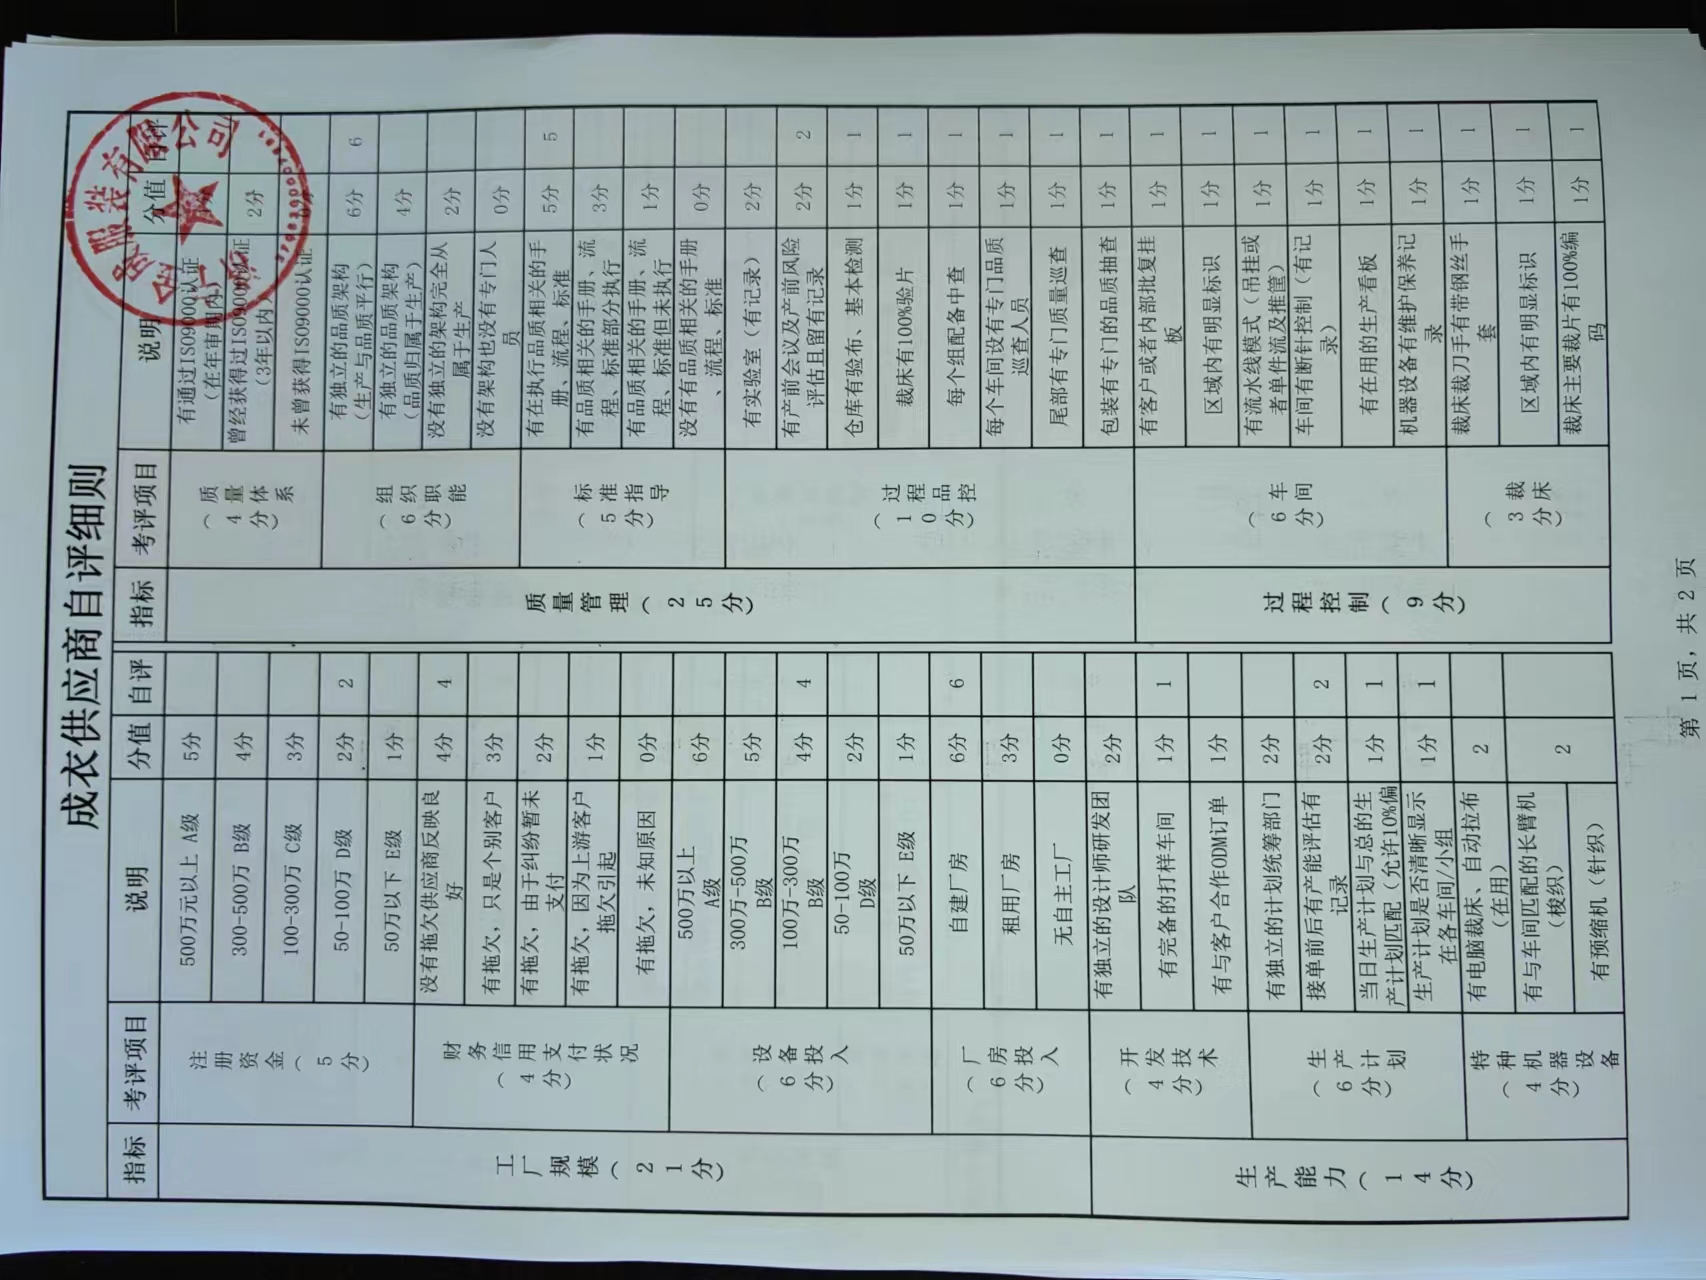 成衣供应商自评细则
指标 考评项目 说明 分值 自评
工厂规模(21分)
注册资金(5分)
500万元以上 A级 5分
300-500万 B级 4分
100-300万 C级 3分
50-100万 D级 2分 2
50万以下 E级 1分
财务信用支付状况(4分)
没有拖欠供应商反映良好 4分 4
有拖欠，只是个别客户 3分
有拖欠，由于纠纷暂未支付 2分
有拖欠，因为上游客户拖欠引起 1分
有拖欠，未知原因 0分
设备投入(6分)
500万以上 A级 6分
300万-500万 B级 5分
100万-300万 B级 4分 4
50-100万 D级 2分
50万以下 E级 1分
厂房投入(6分)
自建厂房 6分 6
租用厂房 3分
无自主工厂 0分
生产能力(14分)
开发技术(4分)
有独立的设计师研发团队 2分
有完备的打样车间 1分 1
有与客户合作ODM订单 1分
生产计划(6分)
有独立的计划统筹部门 2分
接单前后有产能评估有记录 2分 2
当日生产计划与总的生产计划匹配（允许10%偏 1分 1
生产计划是否清晰显示在各车间/小组 1分 1
特种机器设备(4分)
有电脑裁床、自动拉布（在用） 2
有与车间匹配的长臂机（梭织） 2
有预缩机（针织）
指标 考评项目 说明 分值 自评
质量管理(25分)
质量体系(4分)
有通过ISO9000认证（在年审周期内）
曾经获得过ISO9000认证（3年以内） 2分
未曾获得ISO9000认证
组织职能(6分)
有独立的品质架构（生产与品质平行） 6分 6
有独立的品质架构（品质归属于生产） 4分
没有独立的架构完全从属于生产 2分
没有架构也没有专门人员 0分
标准指导(5分)
有在执行品质相关的手册、流程、标准 5分 5
有品质相关的手册、流程、标准部分执行 3分
有品质相关的手册、流程、标准但未执行 1分
没有有品质相关的手册、流程、标准 0分
过程品控(10分)
有实验室（有记录） 2分
有产前会议及产前风险评估且留有记录 2分 2
仓库有验布、基本检测 1分 1
裁床有100%验片 1分 1
每个组配备中查 1分 1
每个车间设有专门品质巡查人员 1分 1
尾部有专门质量巡查 1分 1
包装有专门的品质抽查 1分 1
过程控制(9分)
车间(6分)
有客户或者内部批复挂板 1分 1
区域内有明显标识 1分 1
有流水线模式（吊挂或者单件流及推筐） 1分 1
车间有断针控制（有记录） 1分 1
有在用的生产看板 1分 1
机器设备有维护保养记录 1分 1
裁床(3分)
裁床裁刀手有带钢丝手套 1分 1
区域内有明显标识 1分 1
裁床主要裁片有100%编码 1分 1
服装有限公司
第 1 页，共 2 页